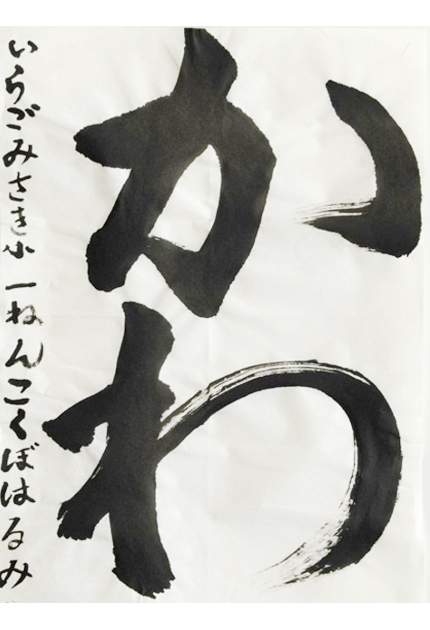 かわ
いらごみさき小 一ねん こくぼはるみ